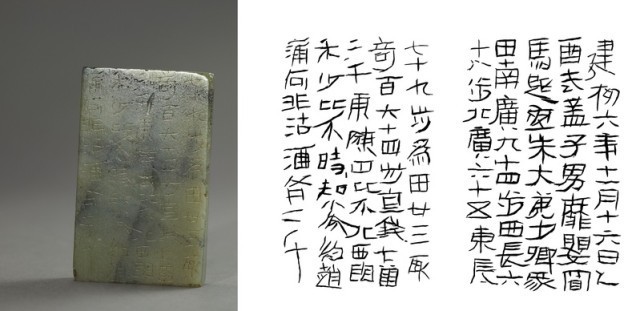 建初六年十一月十六日乙
酉武孟子男靡嬰買
馬熙宜朱大弟少卿冢
田南廣九十四步西長六
十八步北廣六十五東長
七十九步為田廿三畝
奇百六十四步直錢十萬
二千東陳田比介北西南
朱少比介時知券約趙
滿何非沽酒各二斗